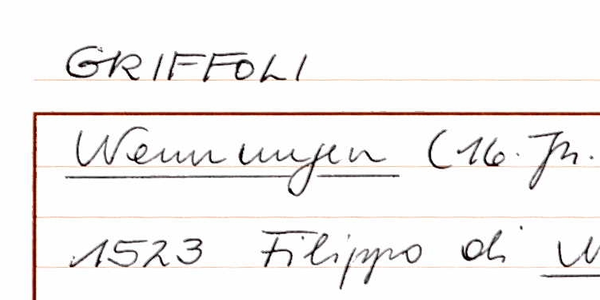 GRIFFOLI
Wennungen (16. Jh.
1523 Filippo di